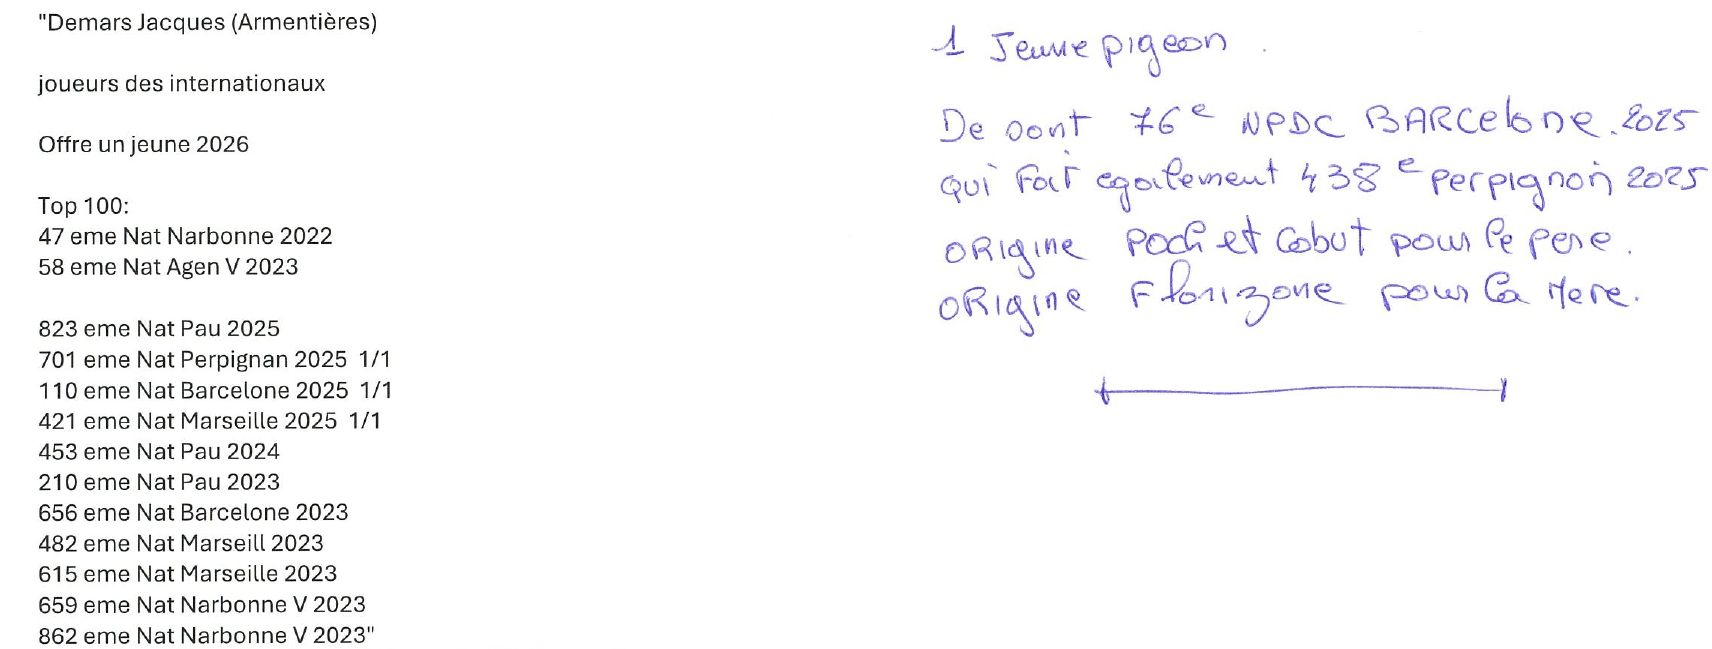 "Demars Jacques (Armentières)
joueurs des internationaux
Offre un jeune 2026
Top 100:
47 eme Nat Narbonne 2022
58 eme Nat Agen V 2023
823 eme Nat Pau 2025
701 eme Nat Perpignan 2025 1/1
110 eme Nat Barcelone 2025 1/1
421 eme Nat Marseille 2025 1/1
453 eme Nat Pau 2024
210 eme Nat Pau 2023
656 eme Nat Barcelone 2023
482 eme Nat Marseill 2023
615 eme Nat Marseille 2023
659 eme Nat Narbonne V 2023
862 eme Nat Narbonne V 2023"
1 Jeune pigeon.
De 76e NPDC BARCelone.2025
qui Fait egalement 438e perpignan 2025
ORigine et Cobut pour le pere.
ORigine Florizone pour la Mere.